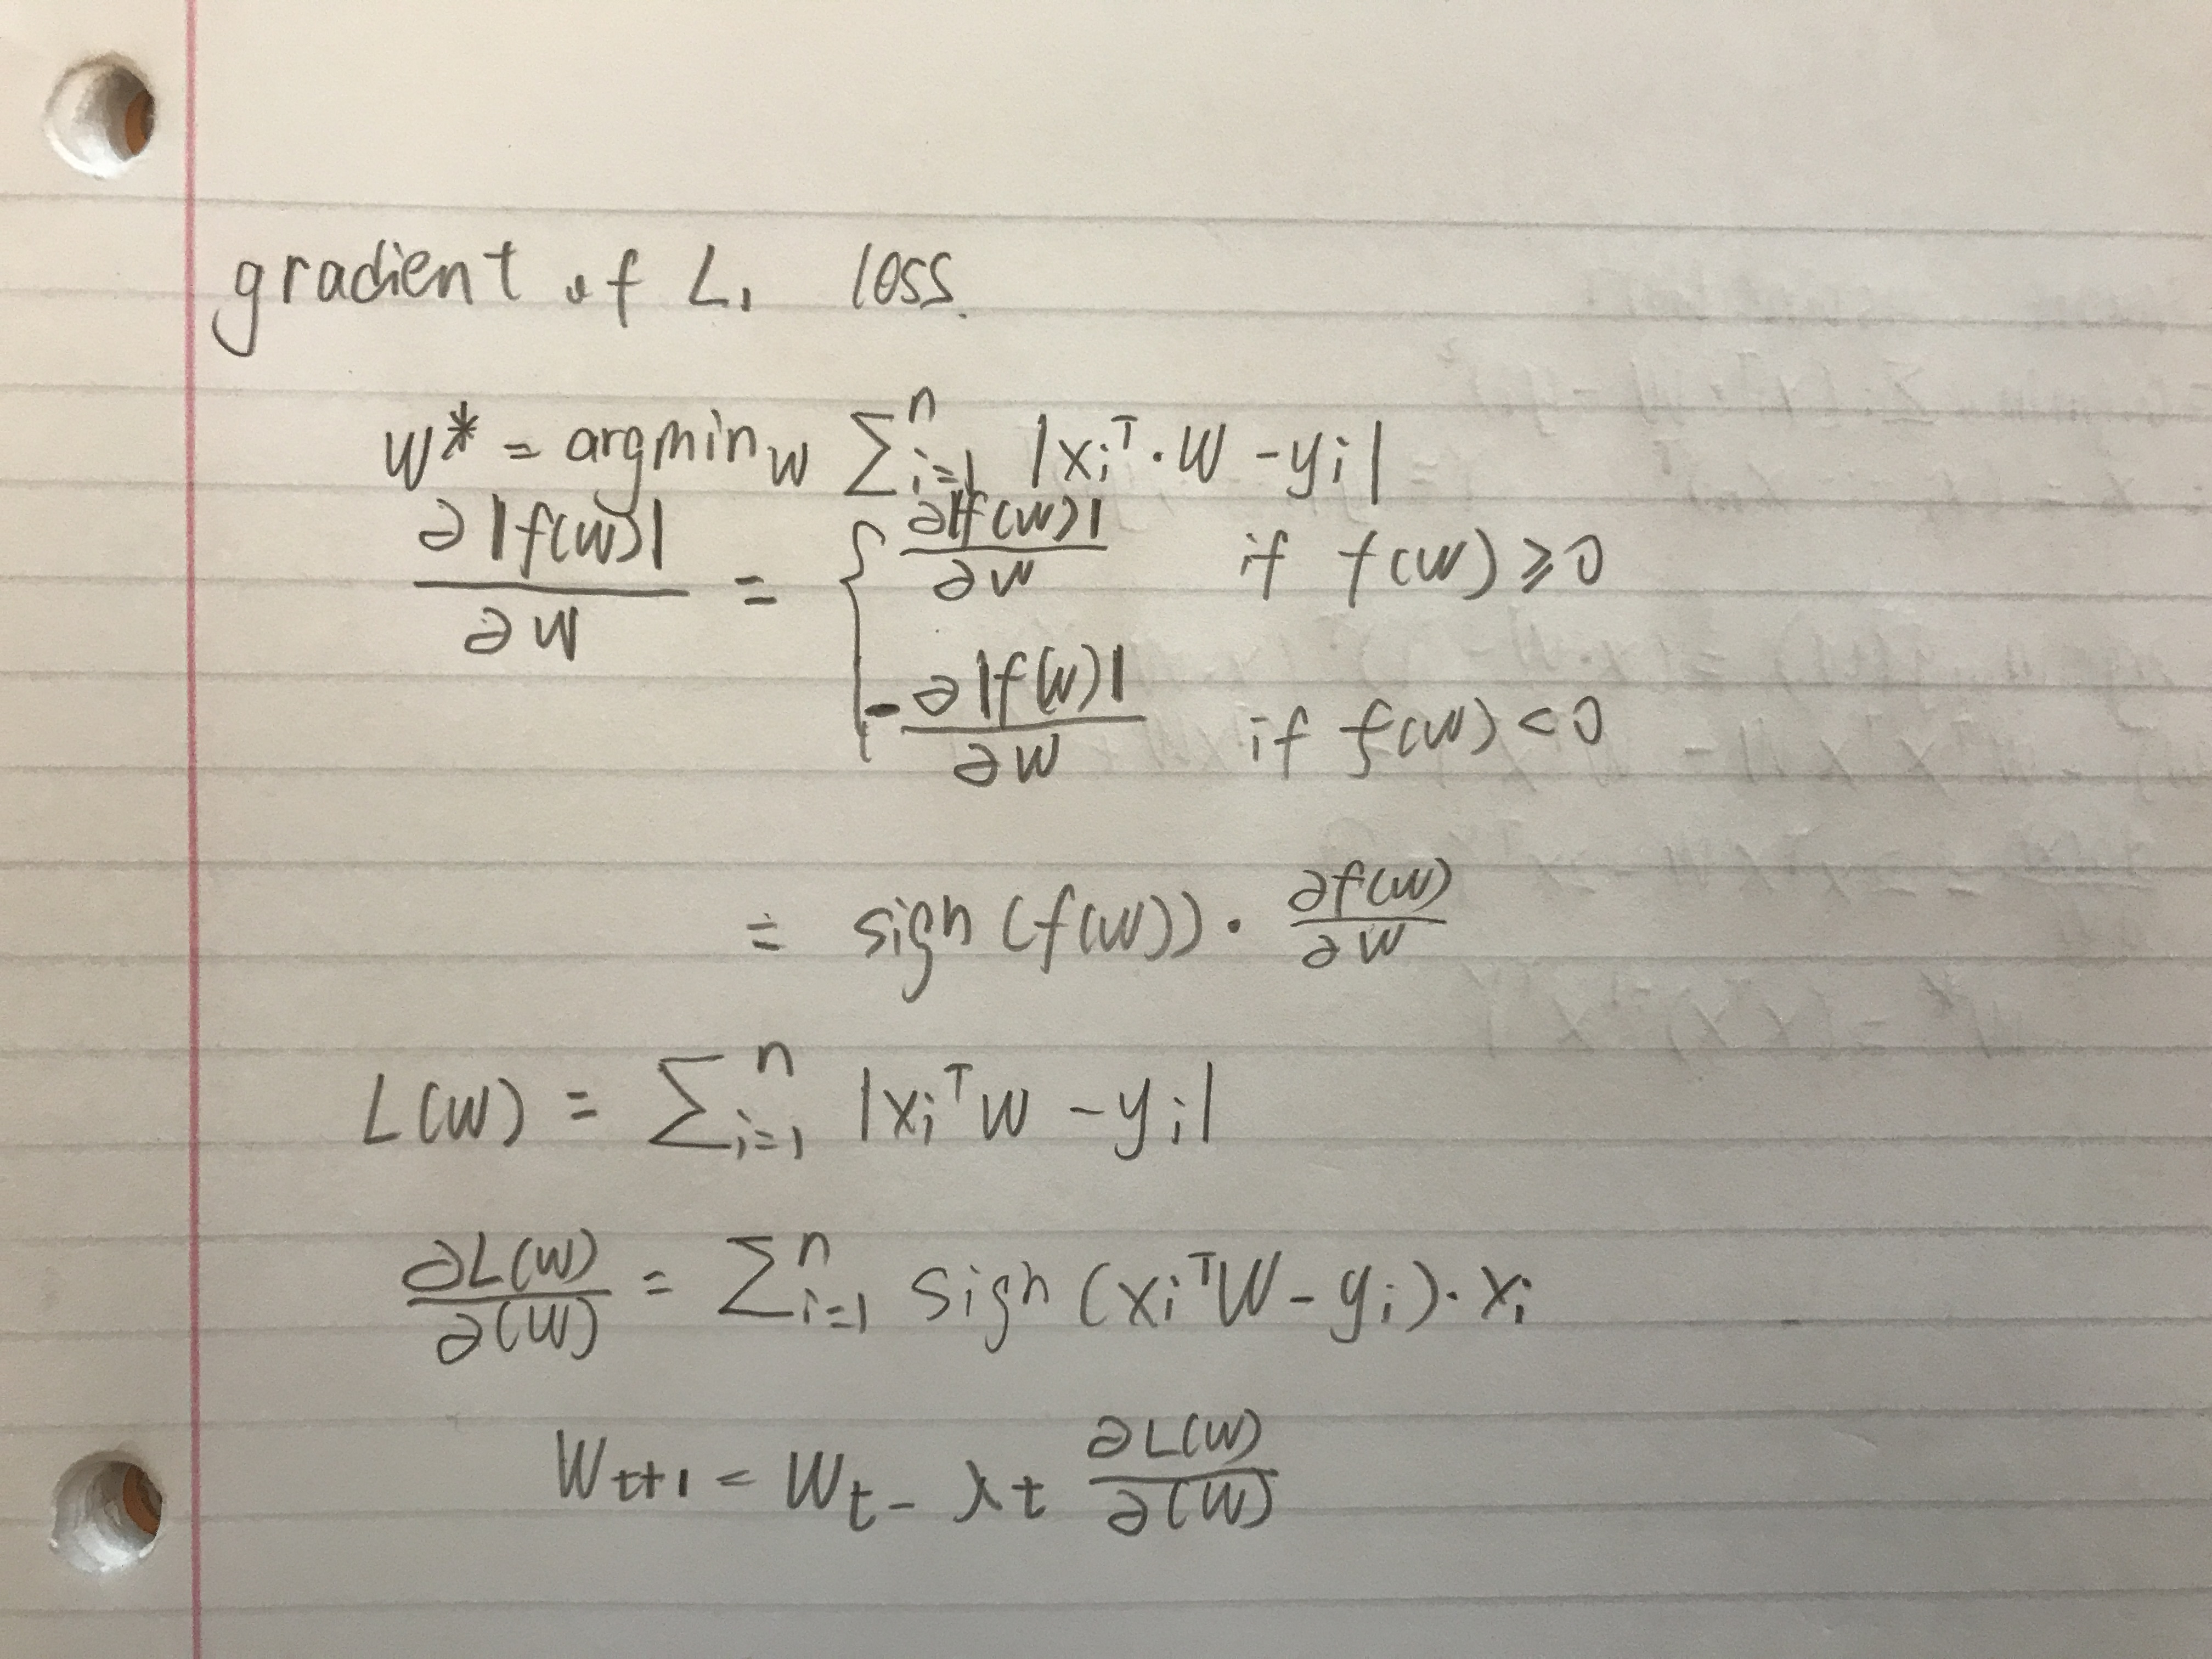 gradient of L₁ loss.
w* = argmin_w ∑_{i=1}^{n} |xᵢᵀ · w - yᵢ|
∂|f(w)| / ∂w = { ∂|f(w)| / ∂w if f(w) ≥ 0
-∂|f(w)| / ∂w if f(w) < 0
= sign(f(w)) · ∂f(w) / ∂w
L(w) = ∑_{i=1}^{n} |xᵢᵀw - yᵢ|
∂L(w) / ∂(w) = ∑_{i=1}^{n} sign(xᵢᵀw - yᵢ) · xᵢ
w_{t+1} = w_t - γ_t ∂L(w) / ∂(w)